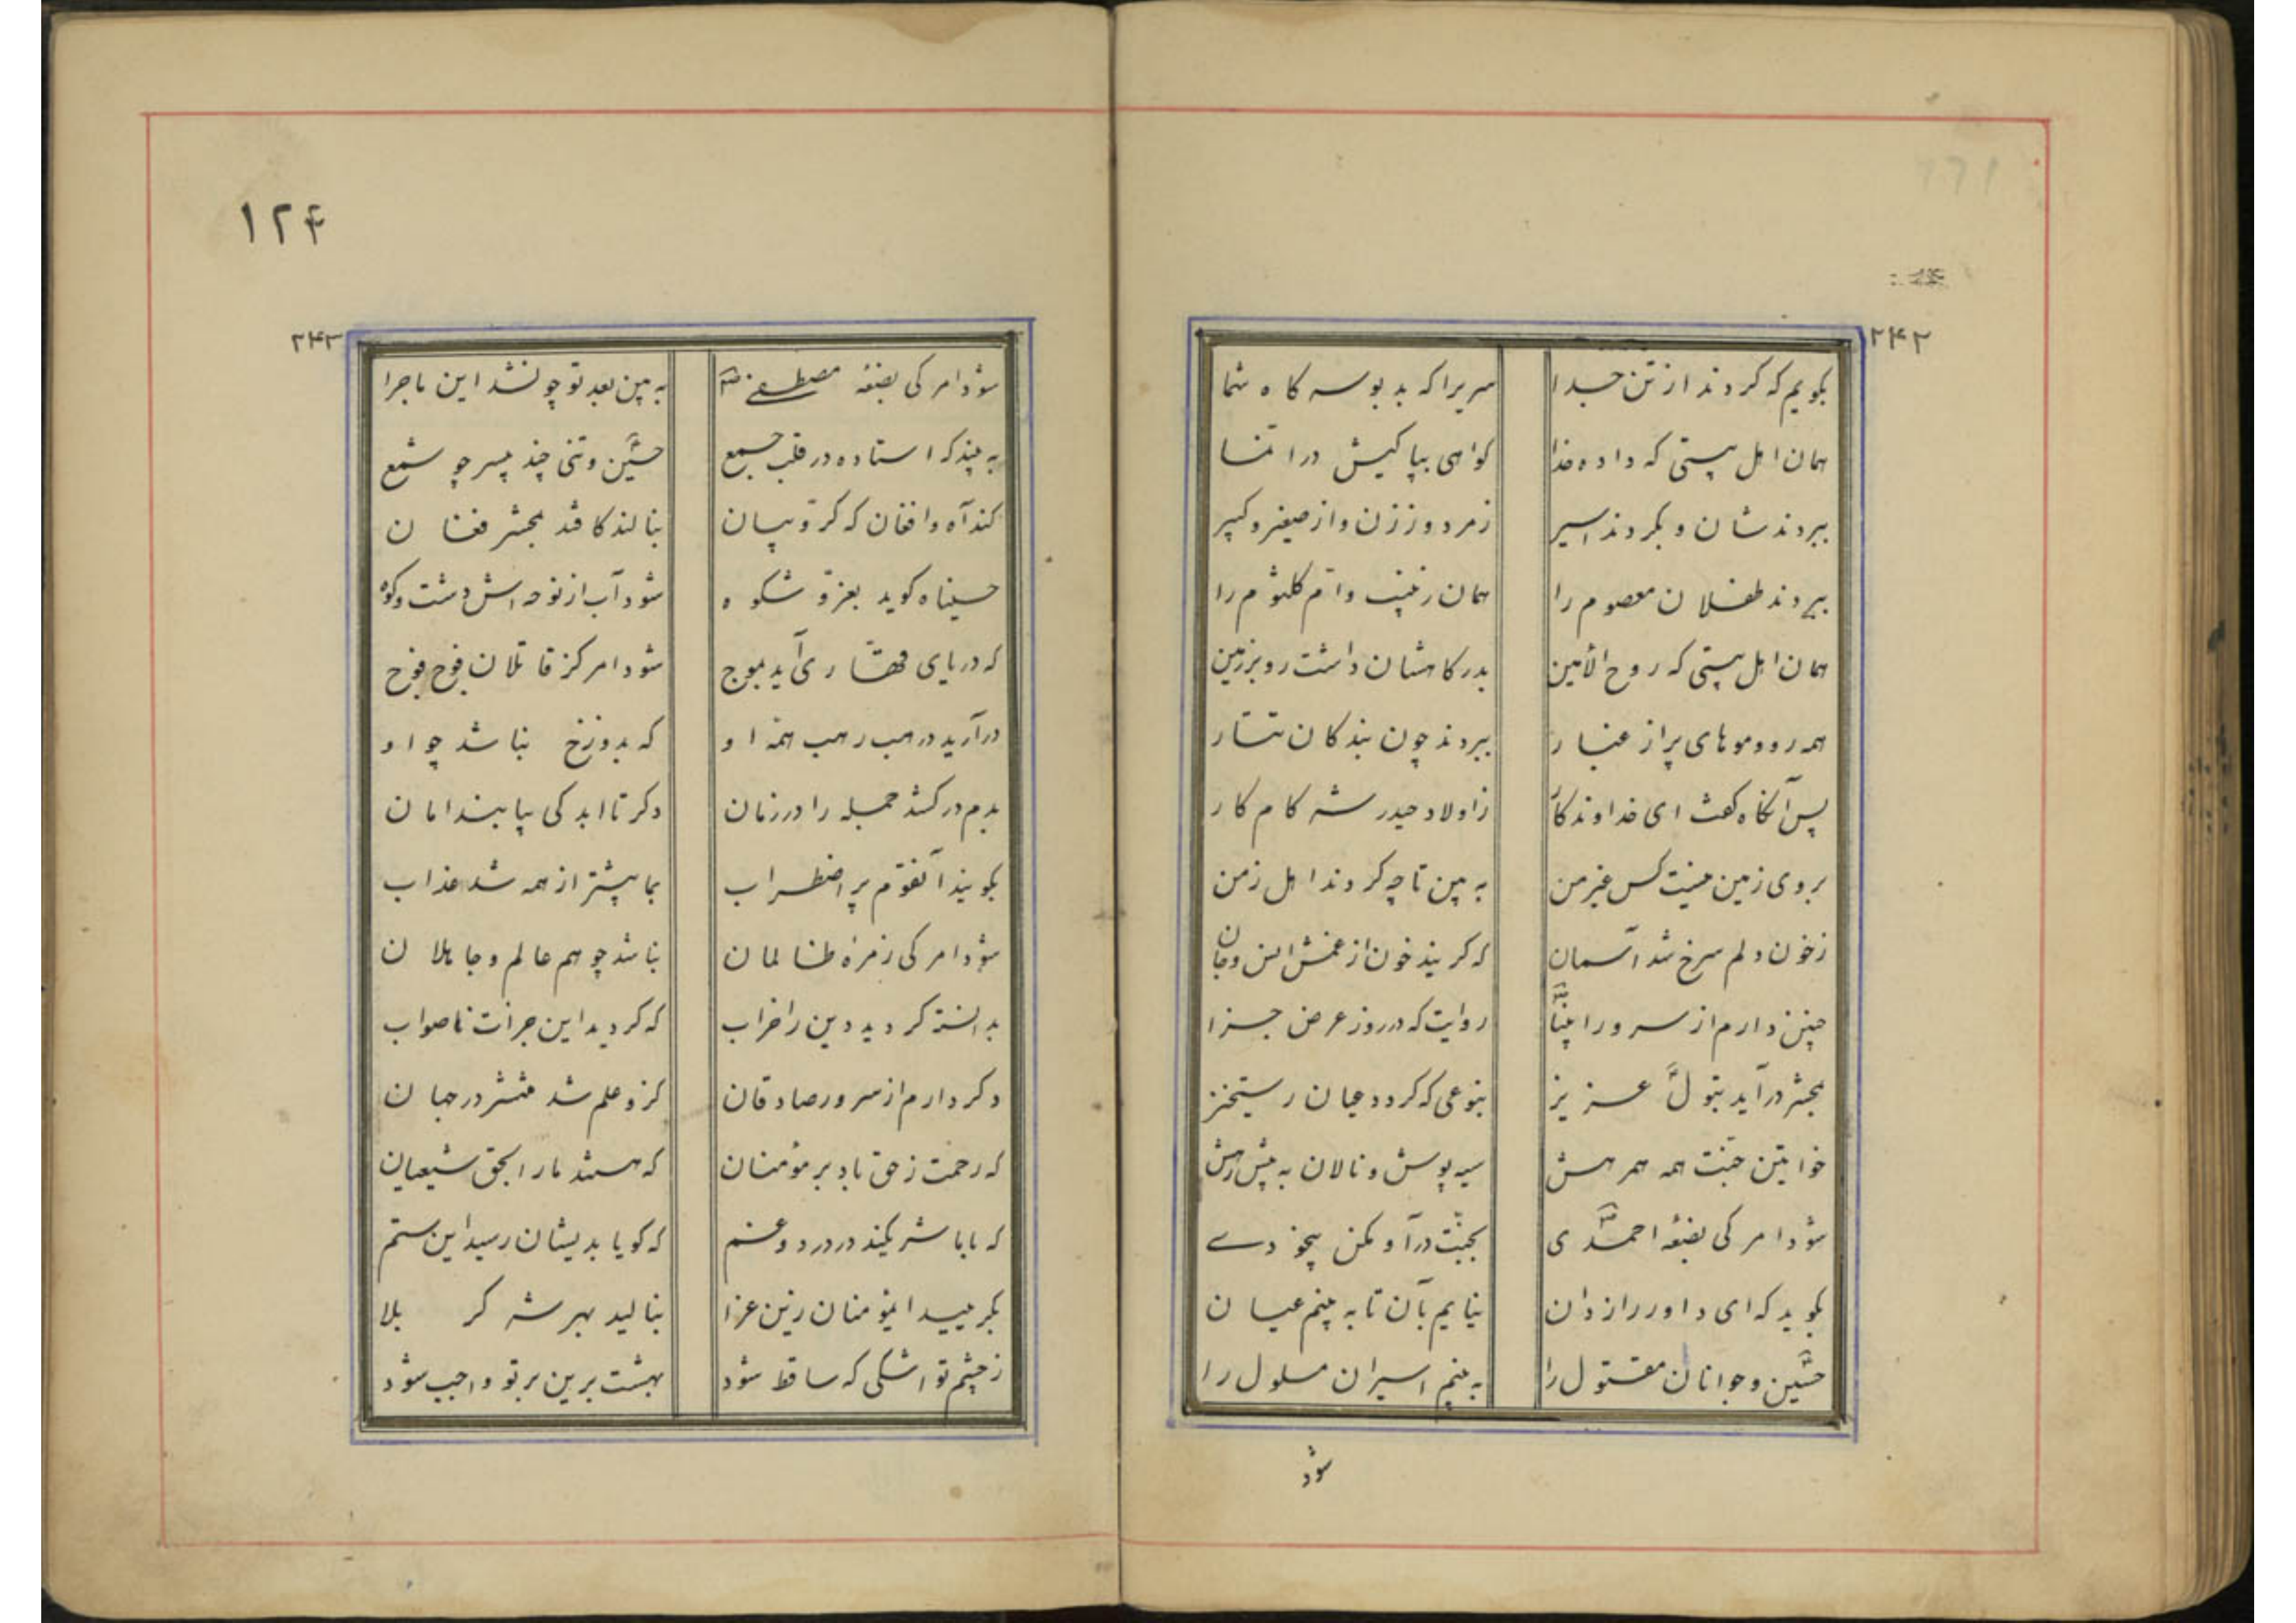 ۲۴۲
بکویم که کردند از تن جدا سریرا که بد بوسه کاه شما
همان اهل بیتی که داده خدا کواهی بپاکیش در انما
ببردندشان و بکردند اسیر ز مرد و ز زن و از صغیر و کبیر
ببردند طفلان معصوم را همان زینب و ام کلثوم را
همان اهل بیتی که روح الأمین بدرکاهشان داشت رو بر زمین
همه رو و موهای پر از غبار ببردند چون بندکان تتار
پس آنکاه کفت ای خداوندکار ز اولاد حیدر شه کامکار
بروی زمین نیست کس غیر من به بین تا چه کردند اهل زمن
ز خون دلم سرخ شد آسمان که کریند خون از غمش انس و جان
چنین دارم از سرور انبیا روایت که در روز عرض جزا
بمحشر در آید بتول عزیز بنوعی که کردد عیان رستخیز
خواتین جنت همه همرهش سیه پوش و نالان به پیش رهش
شود امر کی بضعه احمدی بجنّت درآ و مکن بیخودے
بکوید که ای داور رازدان بنایم بآن تا به بینم عیان
حسین و جوانان مقتول را به بینم اسیران مسلول را
شود
۱۲۴
۲۴۳
شود امر کی بضعه مصطفی به بین بعد تو چون شد این ماجرا
به بیند که استاده در قلب جمع حسین و تنی چند بیسر چو شمع
کند آه و افغان که کرّوبیان بنالند کافتد بمحشر فغان
حسیناه کوید بعزّ و شکوه شود آب از نوحه اش دشت و کوه
که دریای قهّاری آید بموج شود امر کز قاتلان فوج فوج
در آرید در هب هب همه او که بدوزخ نباشد چو او
بدم درکشد جمله را در زمان دکر تا ابد کی بیابند امان
بکویند آنقوم پر اضطراب بما بیشتر از همه شد عذاب
شود امر کی زمره ظالمان نباشد چو هم عالم و جاهلان
بدانسته کردید دین را خراب که کردید این جرأت ناصواب
دکر دارم از سرور صادقان کزو علم شد منتشر در جهان
که رحمت ز حق باد بر مؤمنان که هستند ما را بحق شیعیان
که با ما شریکند در درد و غم که کویا بدیشان رسید این ستم
بکریید ایمؤمنان زین عزا بنالید بهر شه کربلا
ز چشم تو اشکی که ساقط شود بهشت برین بر تو واجب شود